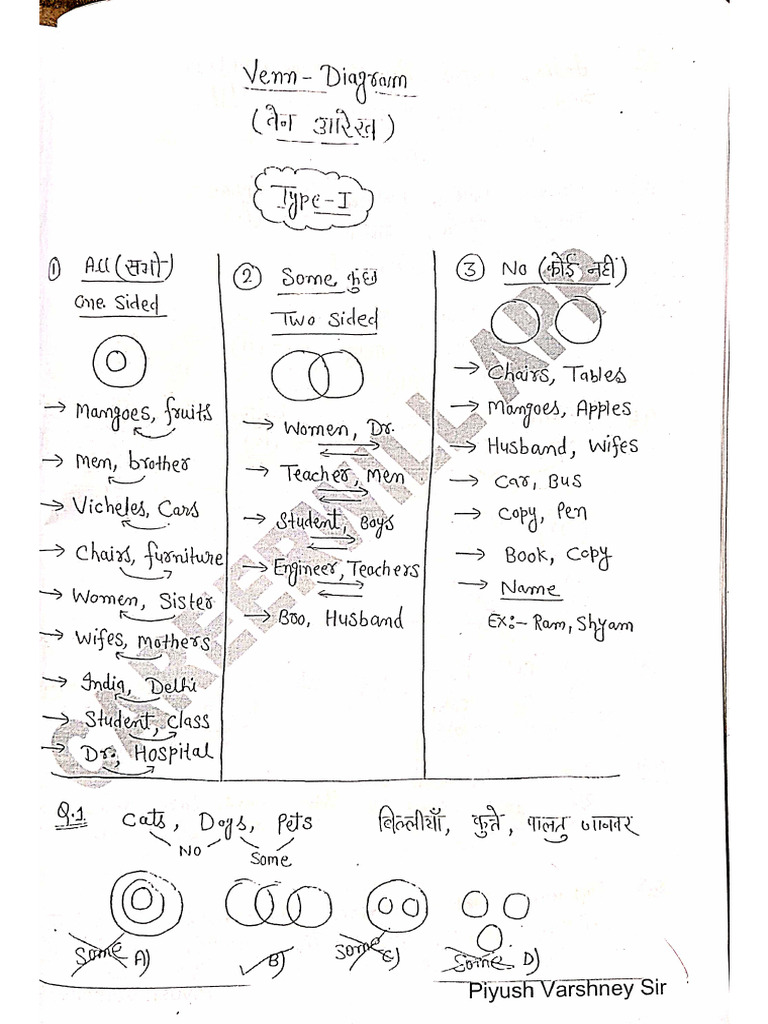 Venn - Diagram
(वेन आरेख)
Type-I
① All (सभी)
One Sided
→ Mangoes, fruits
→ Men, brother
→ Vicheles, Cars
→ Chairs, furniture
→ Women, Sister
→ Wifes, mothers
→ India, Delhi
→ Student, Class
→ Dr., Hospital
② Some कुछ
Two Sided
→ Women, Dr.
→ Teacher, Men
→ Student, Boys
→ Engineer, Teachers
→ Bro, Husband
③ No (कोई नहीं)
→ Chairs, Tables
→ Mangoes, Apples
→ Husband, Wifes
→ Car, Bus
→ Copy, Pen
→ Book, Copy
→ Name
Ex:- Ram, Shyam
CAREERWILL APP
Q.1 Cats, Dogs, Pets बिल्लीयाँ, कुत्ते, पालतु जानवर
NO Some
Some A) B) Some C) Some D)
Piyush Varshney Sir